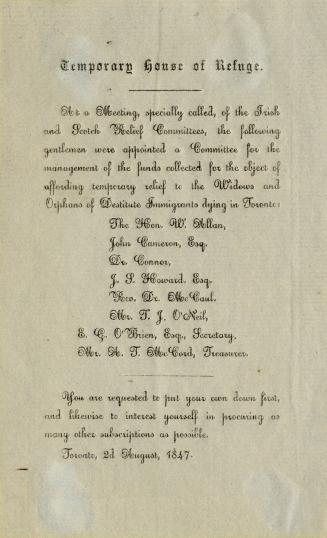 Temporary House of Refuge.
At a Meeting, specially called, of the Irish
and Scotch Relief Committees, the following
gentlemen were appointed a Committee for the
management of the funds collected for the object of
affording temporary relief to the Widows and
Orphans of Destitute Immigrants dying in Toronto:
The Hon. W. Allan,
John Cameron, Esq.
Dr. Connor,
J. S. Howard. Esq.
Rev. Dr. McCaul.
Mr. T. J. O'Neil,
E. G. O'Brien, Esq., Secretary.
Mr. A. T. McCord, Treasurer.
You are requested to put your own down first,
and likewise to interest yourself in procuring as
many other subscriptions as possible.
Toronto, 2d August, 1847.